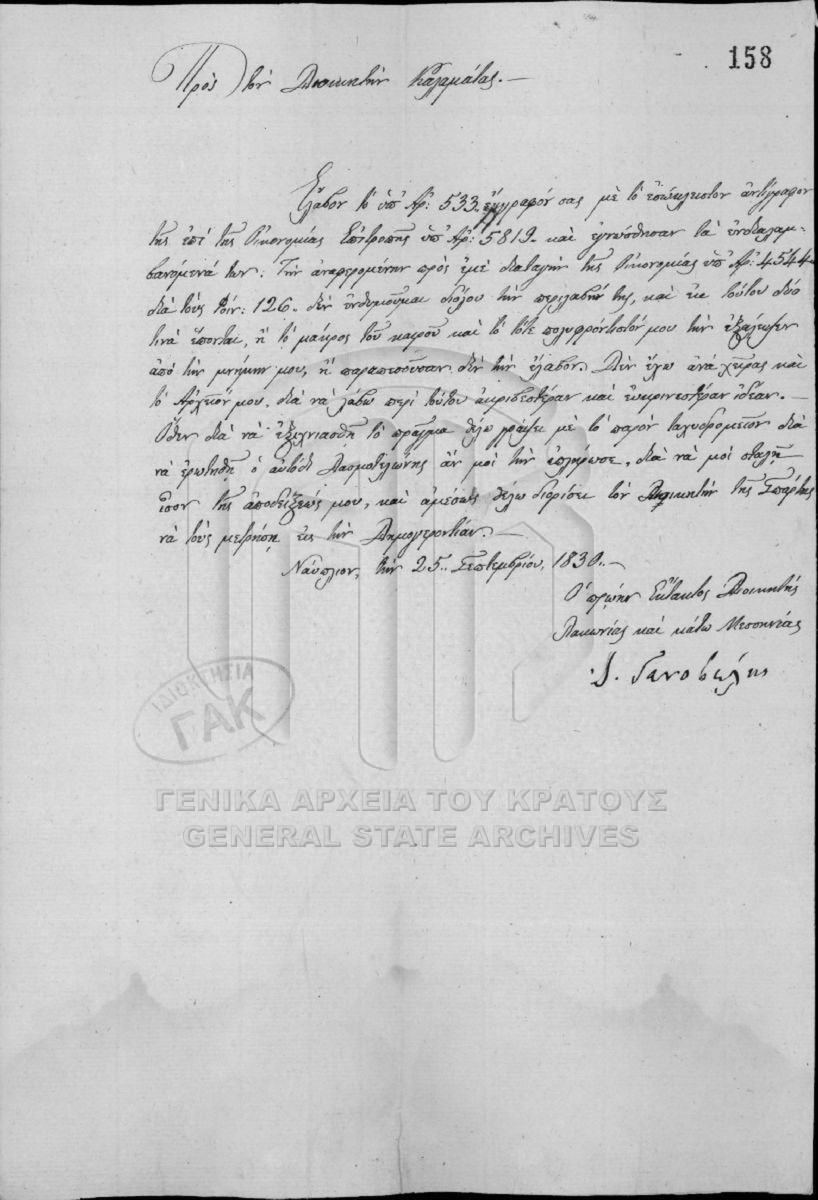 158
Πρὸς τὸν Διοικητὴν Καλαμάτας.—
Ἔλαβον τὸ ὑπ' Ἀρ: 533. ἔγγραφόν σας μὲ τὸ ἐσώκλειστον ἀντίγραφον
τῆς ἐπὶ τῆς Οἰκονομίας Ἐπιτροπῆς ὑπ' Ἀρ: 5819. καὶ ἐγνώσθησαν τὰ ἐνδιαλαμ-
βανόμενά των: Τὴν ἀναφερομένην πρὸς ἐμὲ διαταγὴν τῆς Οἰκονομίας ὑπ' Ἀρ: 4544
διὰ τοὺς Φοίν: 126.. δὲν ἐνθυμοῦμαι διόλου τὴν περιλαβήν της, καὶ ἐκ τούτου δύο
τινὰ ἕπονται, ἢ τὸ μάκρος τοῦ καιροῦ καὶ τὸ τότε πολυφρόντιστόν μου τὴν ἐξάλειψεν
ἀπὸ τὴν μνήμην μου, ἢ παραπεσοῦσαν δὲν τὴν ἔλαβον. Δὲν ἔχω ἀνὰ χεῖρας καὶ
τὸ Ἀρχεῖόν μου, διὰ νὰ λάβω περὶ τούτου ἀκριβεστέραν καὶ εὐκρινεστέραν ἰδέαν.—
Ὅθεν διὰ νὰ ἐξιχνιασθῇ τὸ πρᾶγμα θέλω γράψει μὲ τὸ παρὸν ταχυδρομεῖον διὰ
νὰ ἐρωτηθῇ ὁ αὐτόθι Δασμοτελώνης ἂν μοὶ τὴν ἐπλήρωσε, διὰ νὰ μοὶ σταλῇ
ἴσον τῆς ἀποδείξεώς μου, καὶ ἀμέσως θέλω διορίσει τὸν Διοικητὴν τῆς Σπάρτης
νὰ τοὺς μετρήσῃ εἰς τὴν Δημογεροντίαν.—
Ναύπλιον, τὴν 25.. Σεπτεμβρίου, 1830..—
Ὁ πρώην Ἔκτακτος Διοικητὴς
Λακωνίας καὶ κάτω Μεσσηνίας
Ι. Γενοβέλης
ΙΔΙΟΚΤΗΣΙΑ
ΓΑΚ
ΓΕΝΙΚΑ ΑΡΧΕΙΑ ΤΟΥ ΚΡΑΤΟΥΣ
GENERAL STATE ARCHIVES